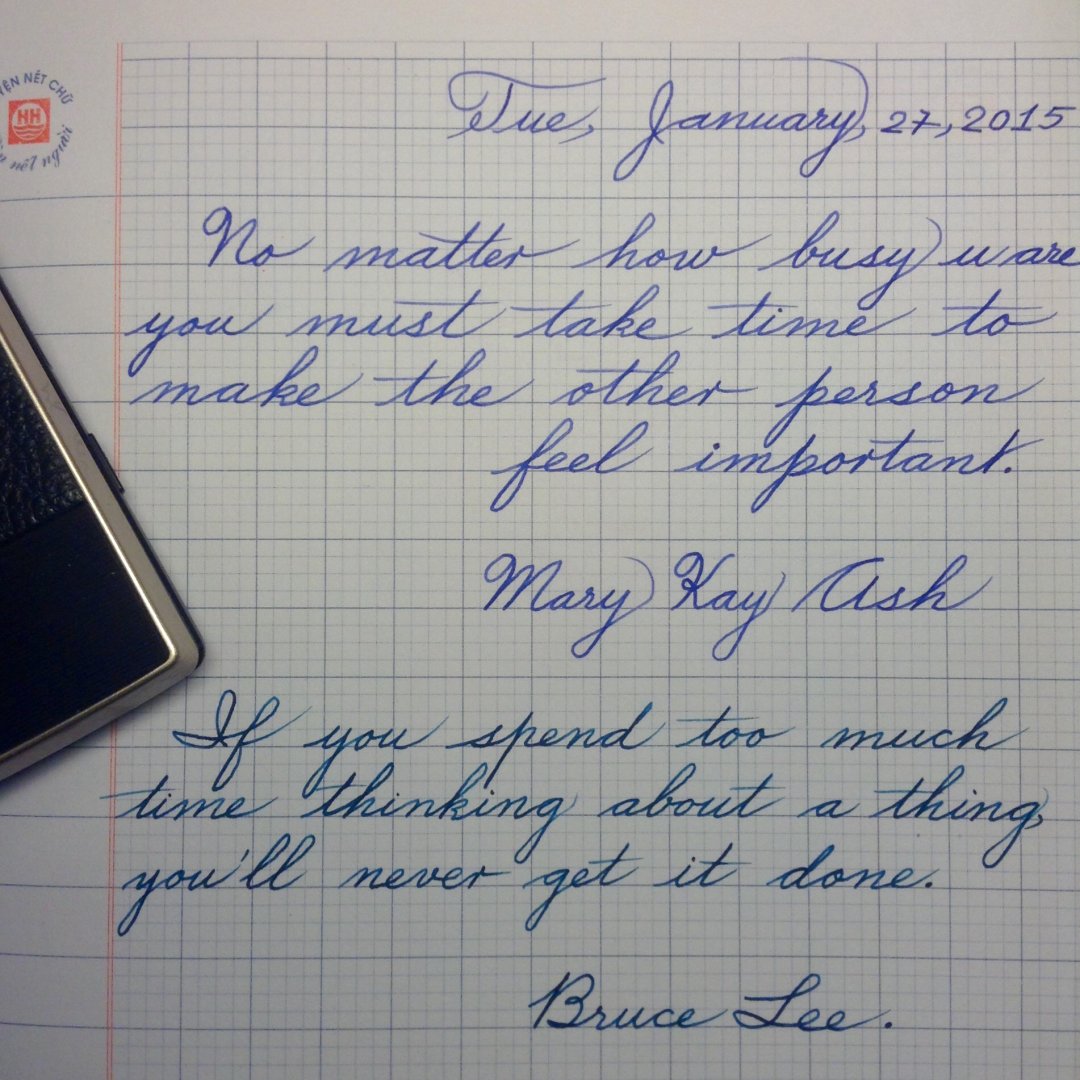 YỆN NÉT CHỮ
HH
nết người
Tue, January, 27, 2015
No matter how busy u are
you must take time to
make the other person
feel important.
Mary Kay Ash
If you spend too much
time thinking about a thing,
you'll never get it done.
Bruce Lee.